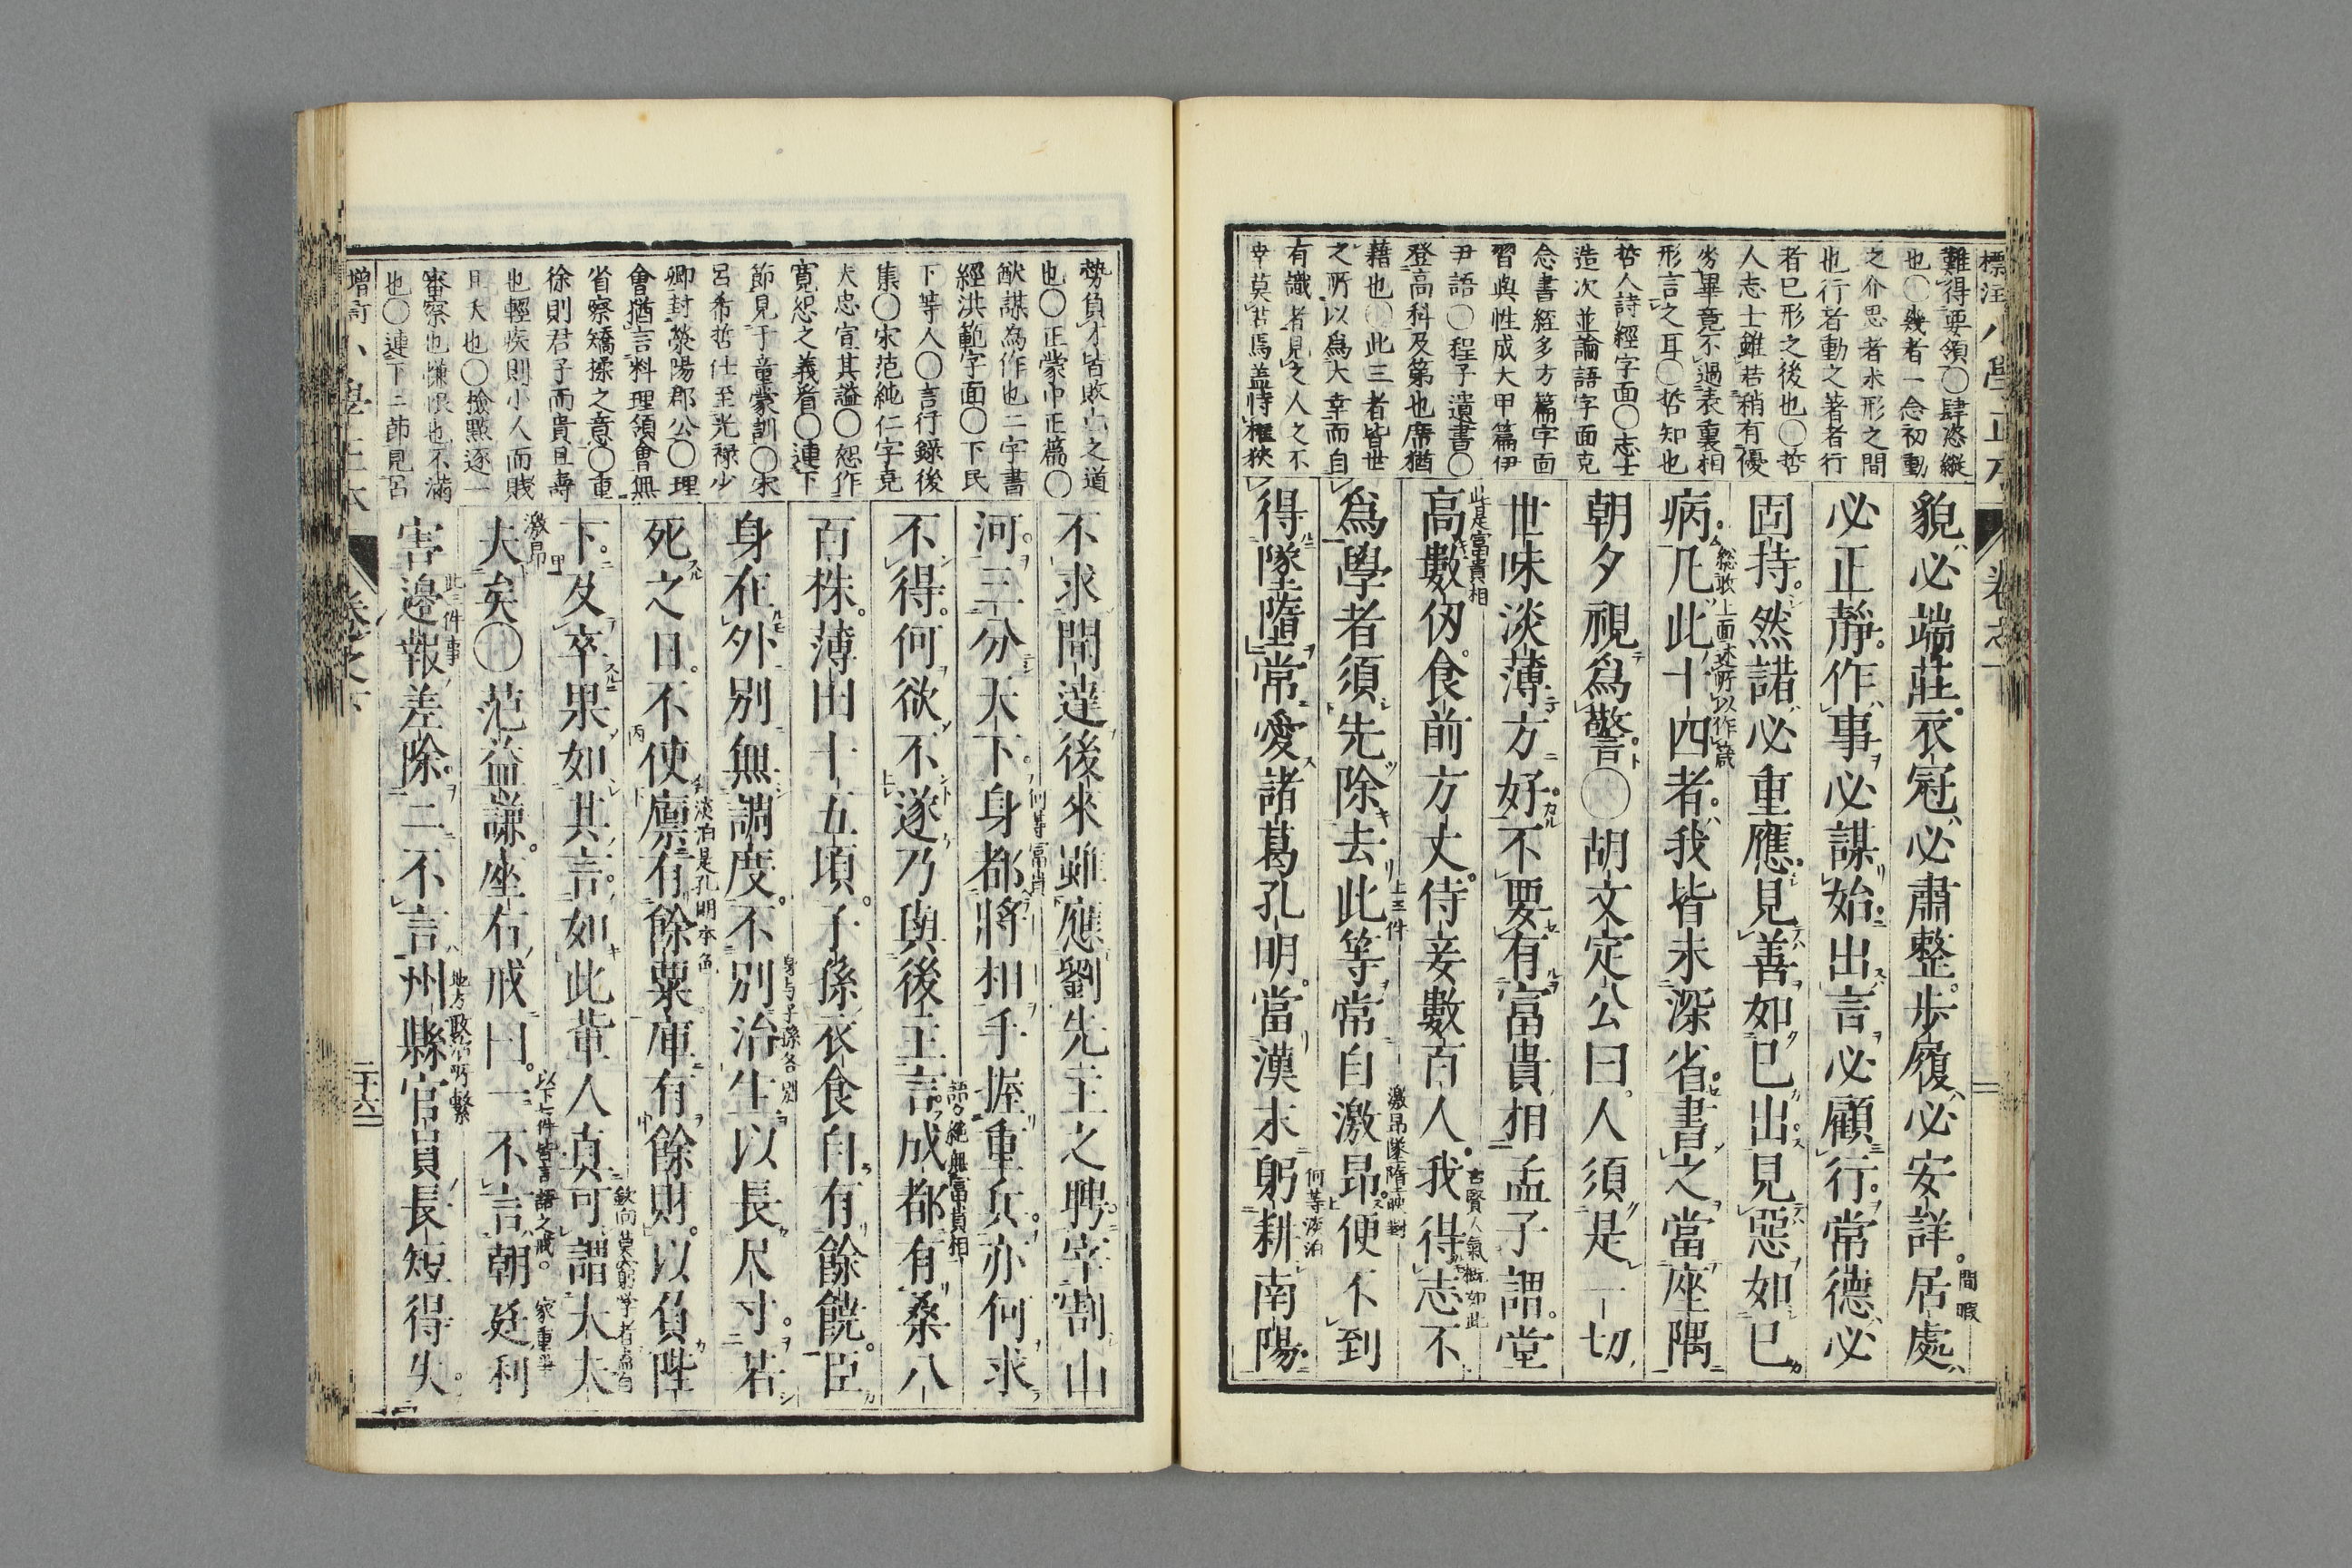 難得要領〇肆恣縱
也〇幾者一念初動
之介思者未形之間
也行者動之著者行
者已形之後也〇哲
人志士雖若稍有優
劣畢竟不過表裏相
形言之耳〇哲知也
哲人詩經字面〇志士
造次並論語字面克
念書經多方篇字面
習與性成大甲篇伊
尹語〇程子遺書〇
登高科及第也席猶
藉也〇此三者皆世
之所以為大幸而自
有識者見之人之不
幸莫若焉蓋恃權挾
貌必端莊衣冠必肅整步履必安詳居處
間暇
必正靜作事必謀始出言必顧行常德必
固持然諾必重應見善如己出見惡如己
病凡此十四者我皆未深省書之當座隅
總敢上面所以作箴
朝夕視為警〇胡文定公曰人須是一切
世味淡薄方好不要有富貴相孟子謂堂
高數仭食前方丈侍妾數百人我得志不
此是富貴相
古賢人氣概如此
為學者須先除去此等常自激昂便不到
上三件
激昂墜墮映對
得墜墮常愛諸葛孔明當漢末躬耕南陽
何等淡泊
勢負才皆敗亡之道
也〇正蒙中正篇〇
猷謀為作也二字書
經洪範字面〇下民
下等人〇言行錄後
集〇宋范純仁字堯
夫忠宣其謚〇恕作
寬恕之義看〇連下
節見于童蒙訓〇宋
呂希哲仕至光祿少
卿封滎陽郡公〇理
會猶言料理領會無
省察矯揉之意〇重
徐則君子而貴且壽
也輕疾則小人而賤
且夭也〇撿點逐一
審察也慊恨也不滿
也〇連下二節見呂
不求聞達後來雖應劉先主之聘宰割山
河三分天下身都將相手握重兵亦何求
何等富貴
不得何欲不遂乃與後主言成都有桑八
語々絕無富貴相
百株薄田十五頃子孫衣食自有餘饒臣
身在外別無調度不別治生以長尺寸若
身与子孫各別
死之日不使廩有餘粟庫有餘財以負陛
淡泊是孔明本色
下及卒果如其言如此輩人真可謂大丈
夫矣〇范益謙座右戒曰一不言朝廷利
激昂
以下七件皆言語之戒。
害邊報差除二不言州縣官員長短得失
此三件事
卷之下
二十六